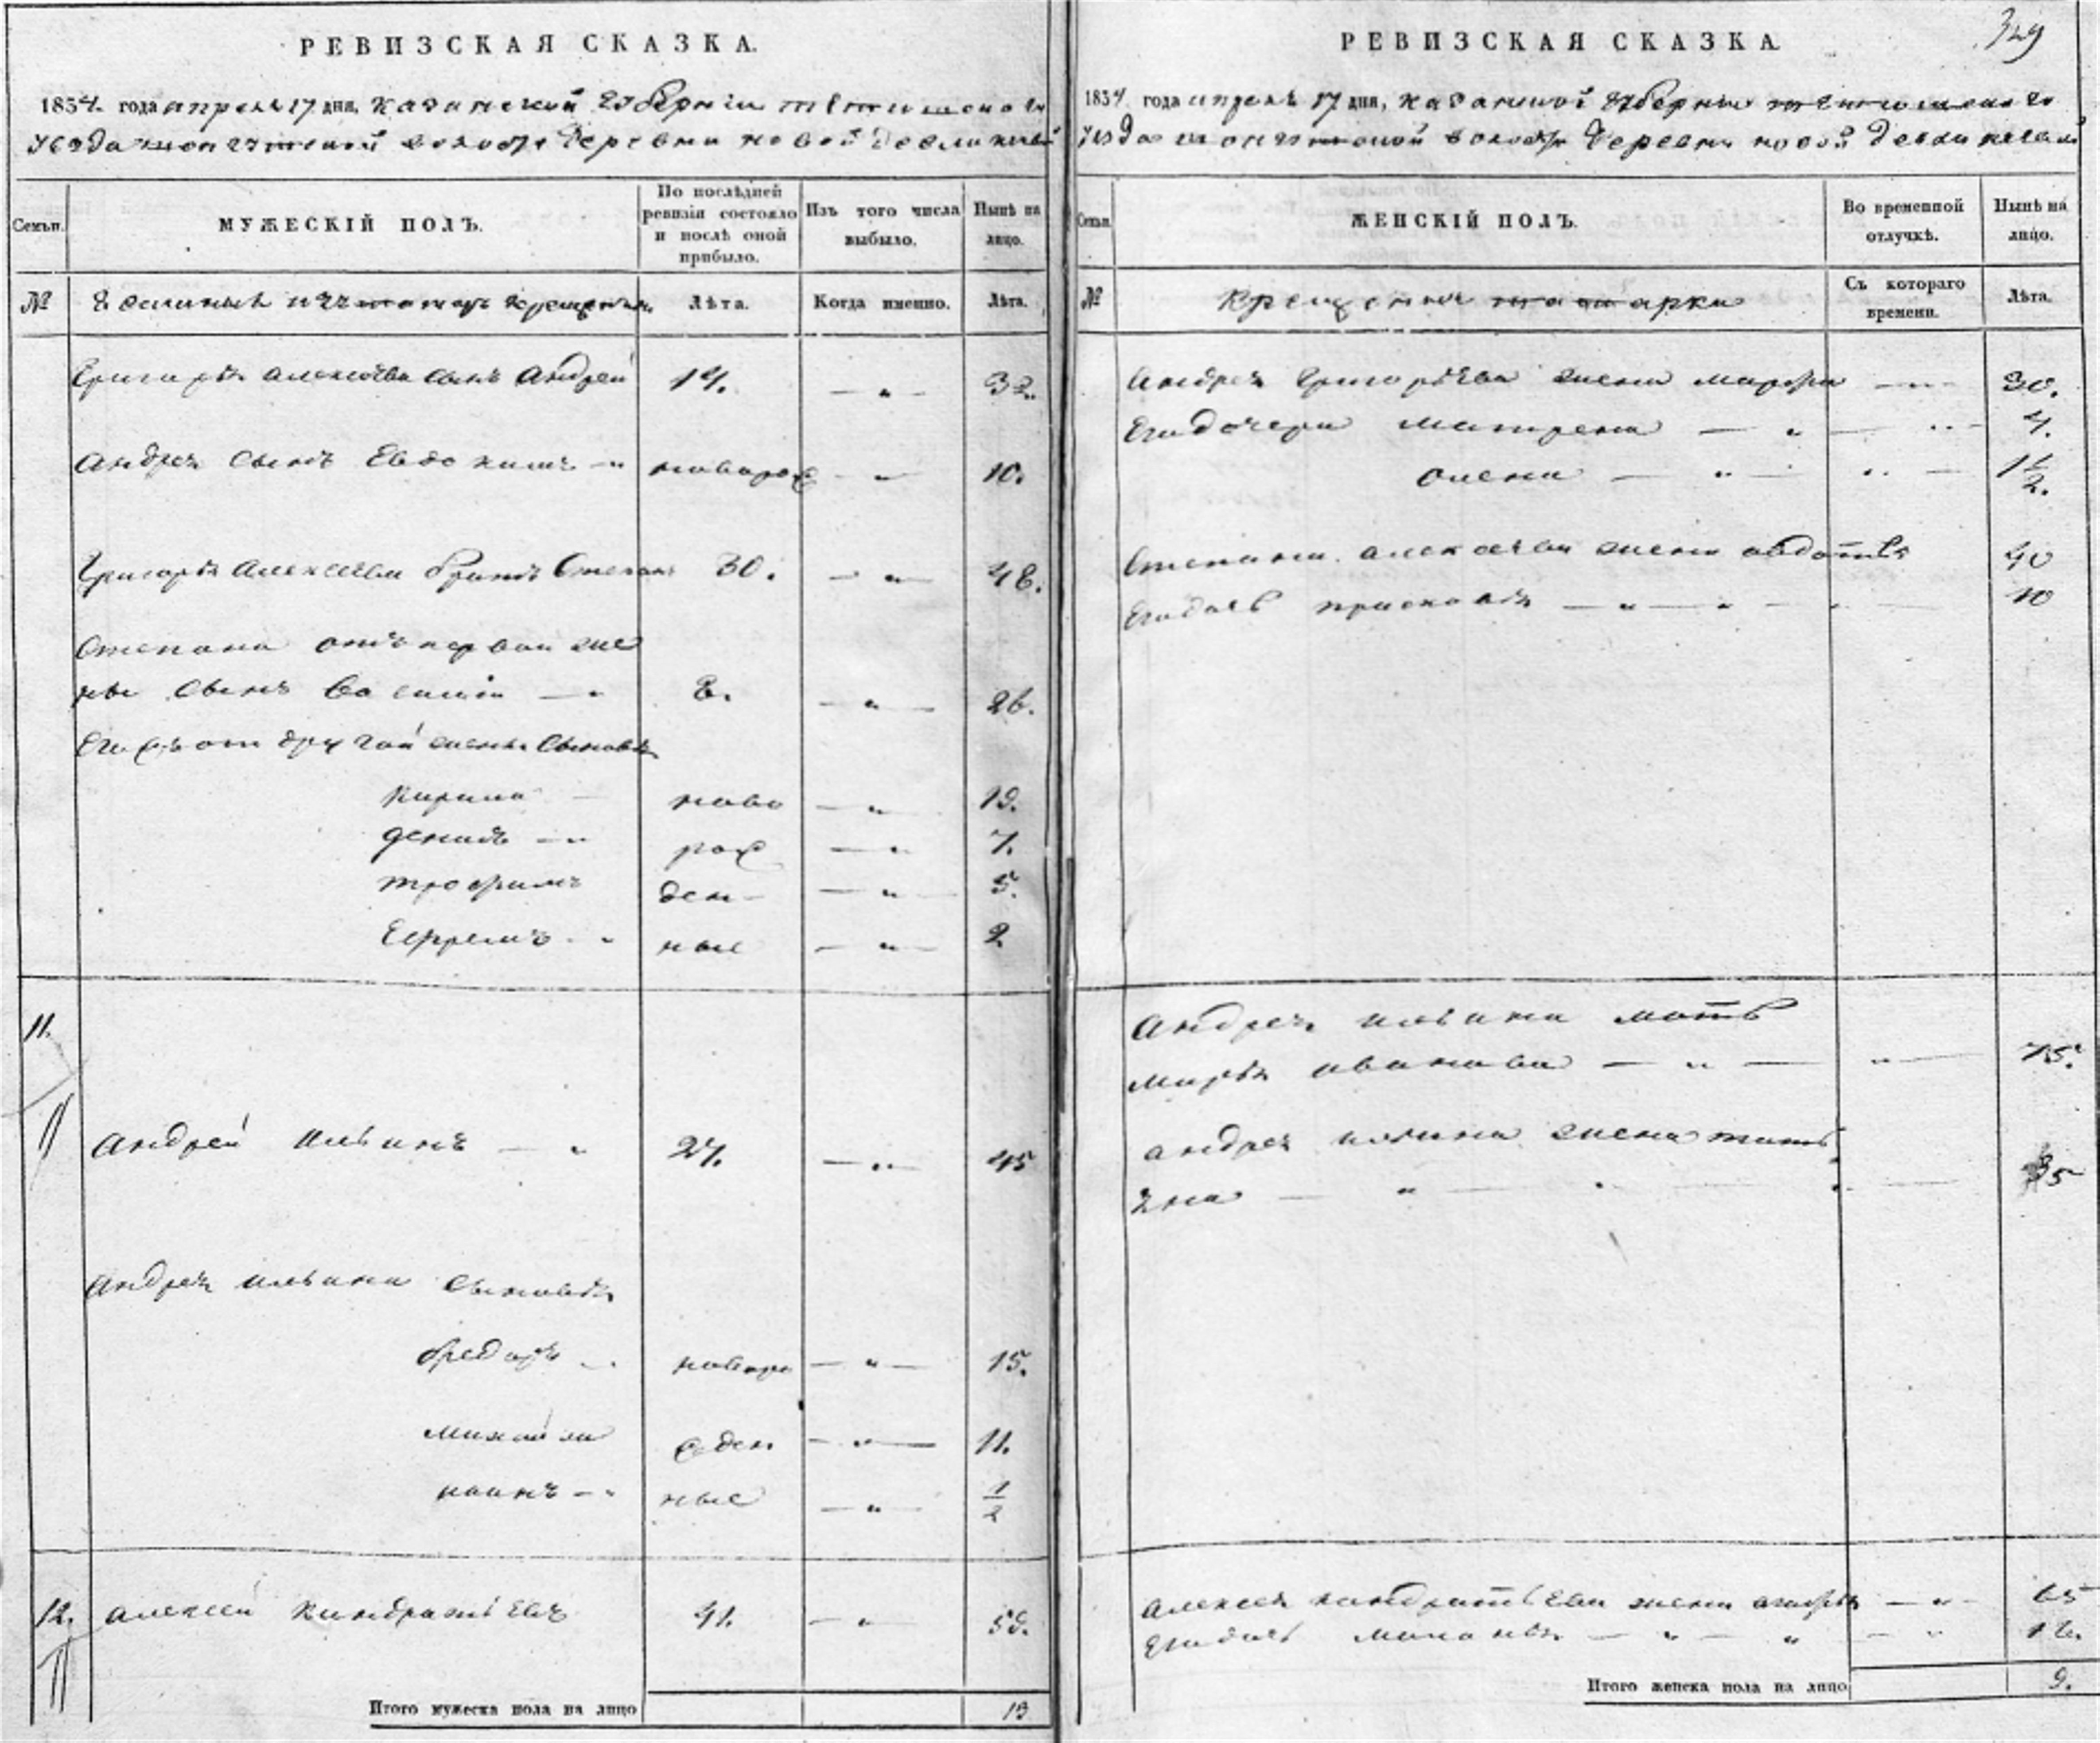 РЕВИЗСКАЯ СКАЗКА.
1854. года апреля 17 дня, Казанской Губернии Тетюшскаго
уезда волости Деревни Новой
Семьи.
МУЖЕСКІЙ ПОЛЪ.
По послѣдней ревизіи состояло и послѣ оной прибыло.
Изъ того числа выбыло.
Нынѣ на лицо.
№
изъ татаръ крещеныхъ
Лѣта.
Когда именно.
Лѣта.
Григорья Алексѣева сынъ Андрей 14. — " — 32.
Андрея сынъ Евдокимъ — " новорож — " — 10.
Григорья Алексѣева братъ Степанъ 30. — " — 48.
Степана отъ первой же
ны сынъ Василій — " 8. — " — 26.
Его жъ отъ другой жены сыновья
Кирила — ново — " — 19.
Демидъ — " рож — " — 7.
Трофимъ ден — — " — 5.
Ефремъ - " ные — " — 2.
11.
Андрей Ильинъ — " 27. — " — 45
Андрея Ильина сыновья
Федоръ - " новоро — " — 15.
Михайла жден — " — 11.
Иванъ — " ные — " — 1/2
12. Алексей Кондратьевъ 41. — " — 59.
Итого мужеска пола на лицо 13
РЕВИЗСКАЯ СКАЗКА.
329
1854 года апреля 17 дня, Казанской Губернии Тетюшскаго
уезда волости Деревни Новой
Семьи.
ЖЕНСКІЙ ПОЛЪ.
Во временной отлучкѣ.
Нынѣ на лицо.
№
Крещеныя татарки
Съ котораго времени.
Лѣта.
Андрея Григорьева жена Марфа — " — 30.
Его дочери Матрена — " — " — 4.
Олена — " — " — 1 1/2.
Степана Алексѣева жена Авдотья 40
Его дочь Прасковья — " — " — 10
Андрея Ильина мать
Марья Иванова — " — " — 75.
Андрея Ильина жена Тать
яна — " — " — " — 35
Алексея Кондратьева жена — " — 65
Его дочь Маланья — " — " — " 18.
Итого женска пола на лицо 9.